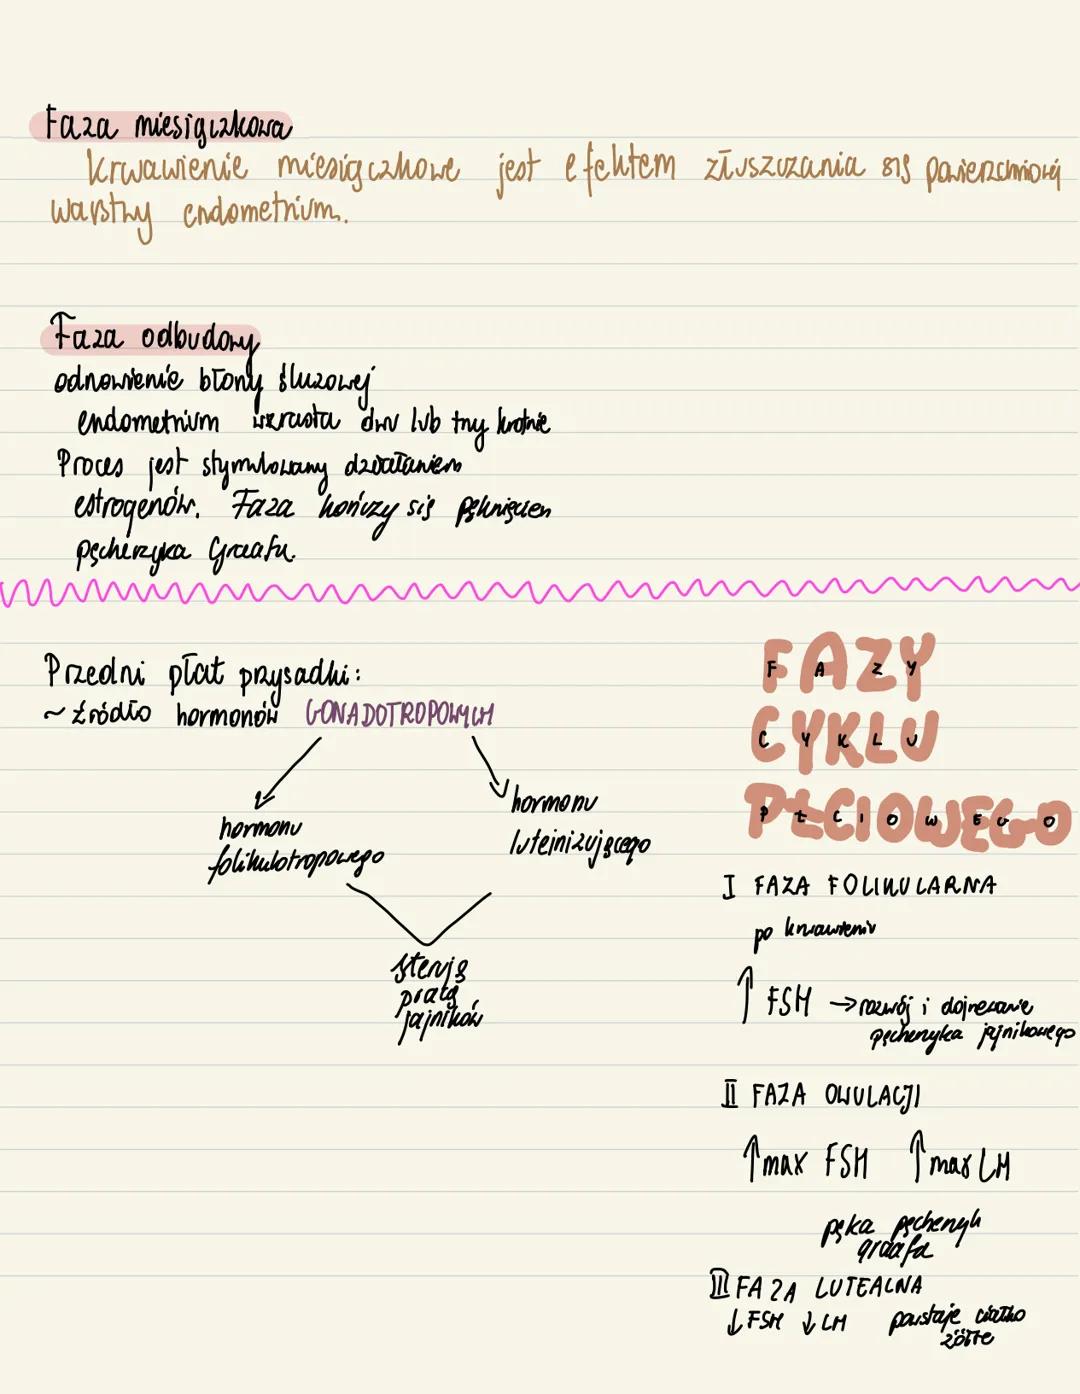 Faza miesiączkowa
Krwawienie miesiączkowe jest efektem złuszczania się powierzchniowej
warstwy endometrium.
Faza odbudowy
odnowienie błony śluzowej
endometrium wzrasta dwu lub trzy krotnie
Proces jest stymulowany działaniem
estrogenów. Faza kończy się pęknięciem
pęcherzyka Graafa.
Przedni płat przysadki:
~ źródło hormonów GONADOTROPOWYCH
hormonu
folikulotropowego
hormonu
luteinizującego
sterują
pracą
jajników
FAZY
CYKLU
PŁCIOWEGO
I FAZA FOLIKULARNA
po krwawieniu
↑ FSH → rozwój i dojrzewanie
pęcherzyka jajnikowego
II FAZA OWULACJI
↑ max FSH ↑ max LH
pęka pęcherzyk
graafa
III FAZA LUTEALNA
↓ FSH ↓ LH powstaje ciałko
żółte